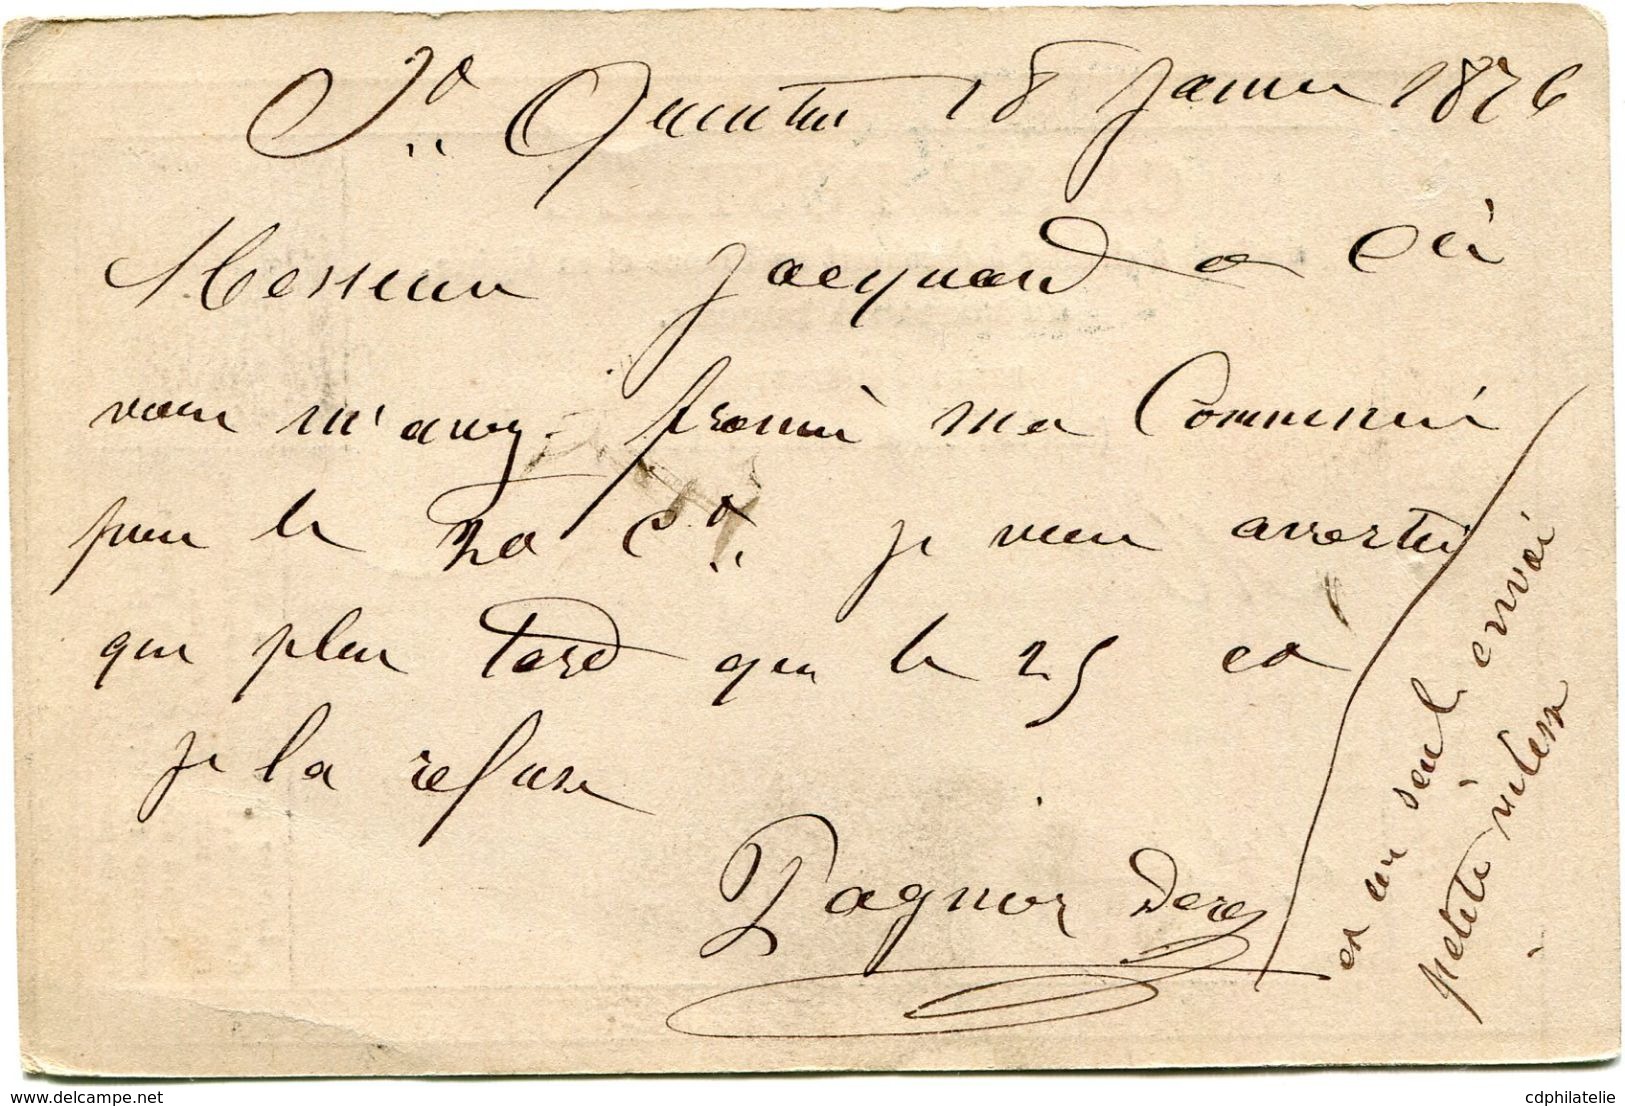 St Quentin 18 Janvier 1876
Messieurs Jacquard & Cie
vous m'avez promis ma Commission
pour le 20 Ct. je vous avertis
que plus tard que le 25 ct
je la refuse
Pagnier
et un seul envoi
petite vitesse
www.cdphilatelie.net
cdphilatelie